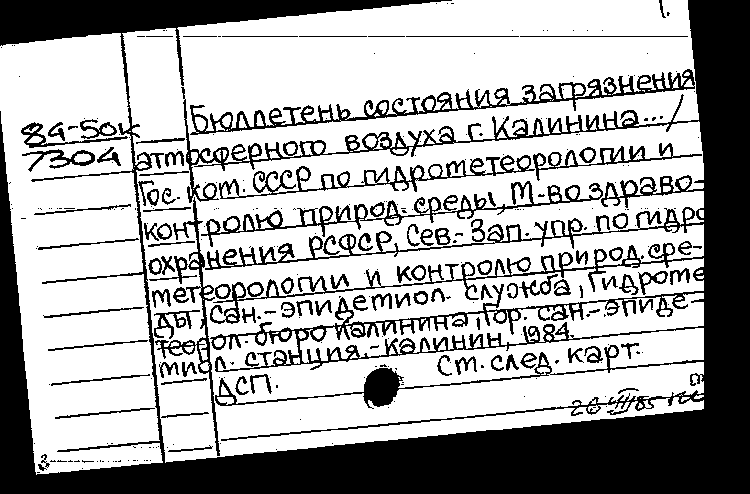 84-50к
7304
Бюллетень состояния загрязнения
атмосферного воздуха г. Калинина.../
Гос. ком. СССР по гидрометеорологии и
контролю природ. среды, М-во здраво-
охранения РСФСР, Сев.-Зап. упр. по гидро
метеорологии и контролю природ. сре-
ды, Сан.-эпидемиол. служба, Гидромете
теорол. бюро Калинина, Гор. сан.-эпиде-
миол. станция.-Калинин, 1984.
Ст. след. карт.
ДСП.